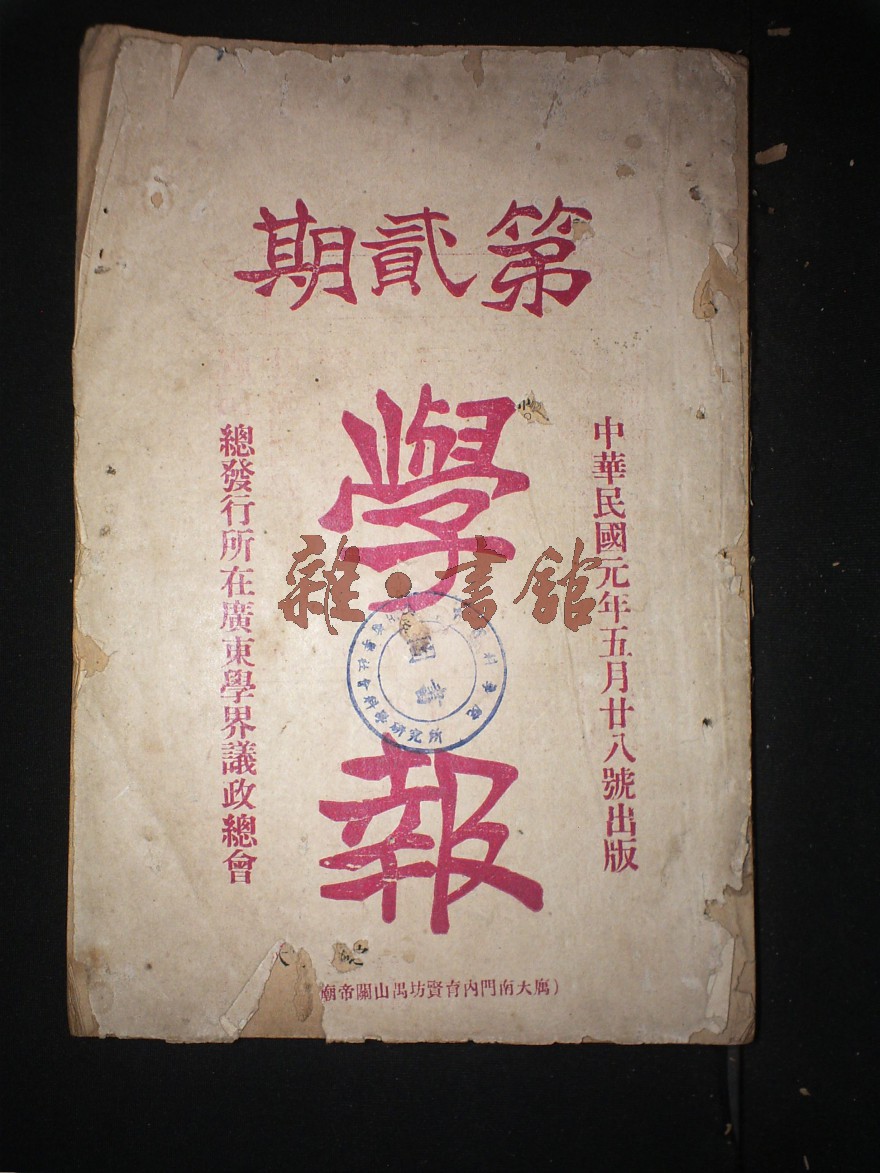 第貳期
中華民國元年五月廿八號出版
學報
總發行所在廣東學界議政總會
雜·書館
圖書
研究所
大南門內育賢坊禺山關帝廟